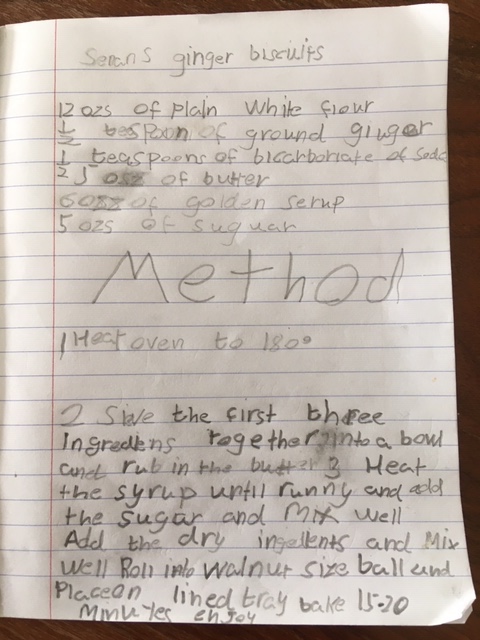 Serans ginger biscuits
12 ozs of plain white flour
1/2 tespoon of ground ginger
1/2 teaspoons of bicarbonate of soda
5 osz of butter
6ozz of golden serup
5 ozs of suguar
Method
1 Heat oven to 180°
2 Sive the first three
Ingrediens together into a bowl
and rub in the butter 3 Heat
the syrup until runny and add
the sugar and mix well
Add the dry ingedients and Mix
well Roll into walnut size ball and
Place on lined tray bake 15-20
Minutes enjoy